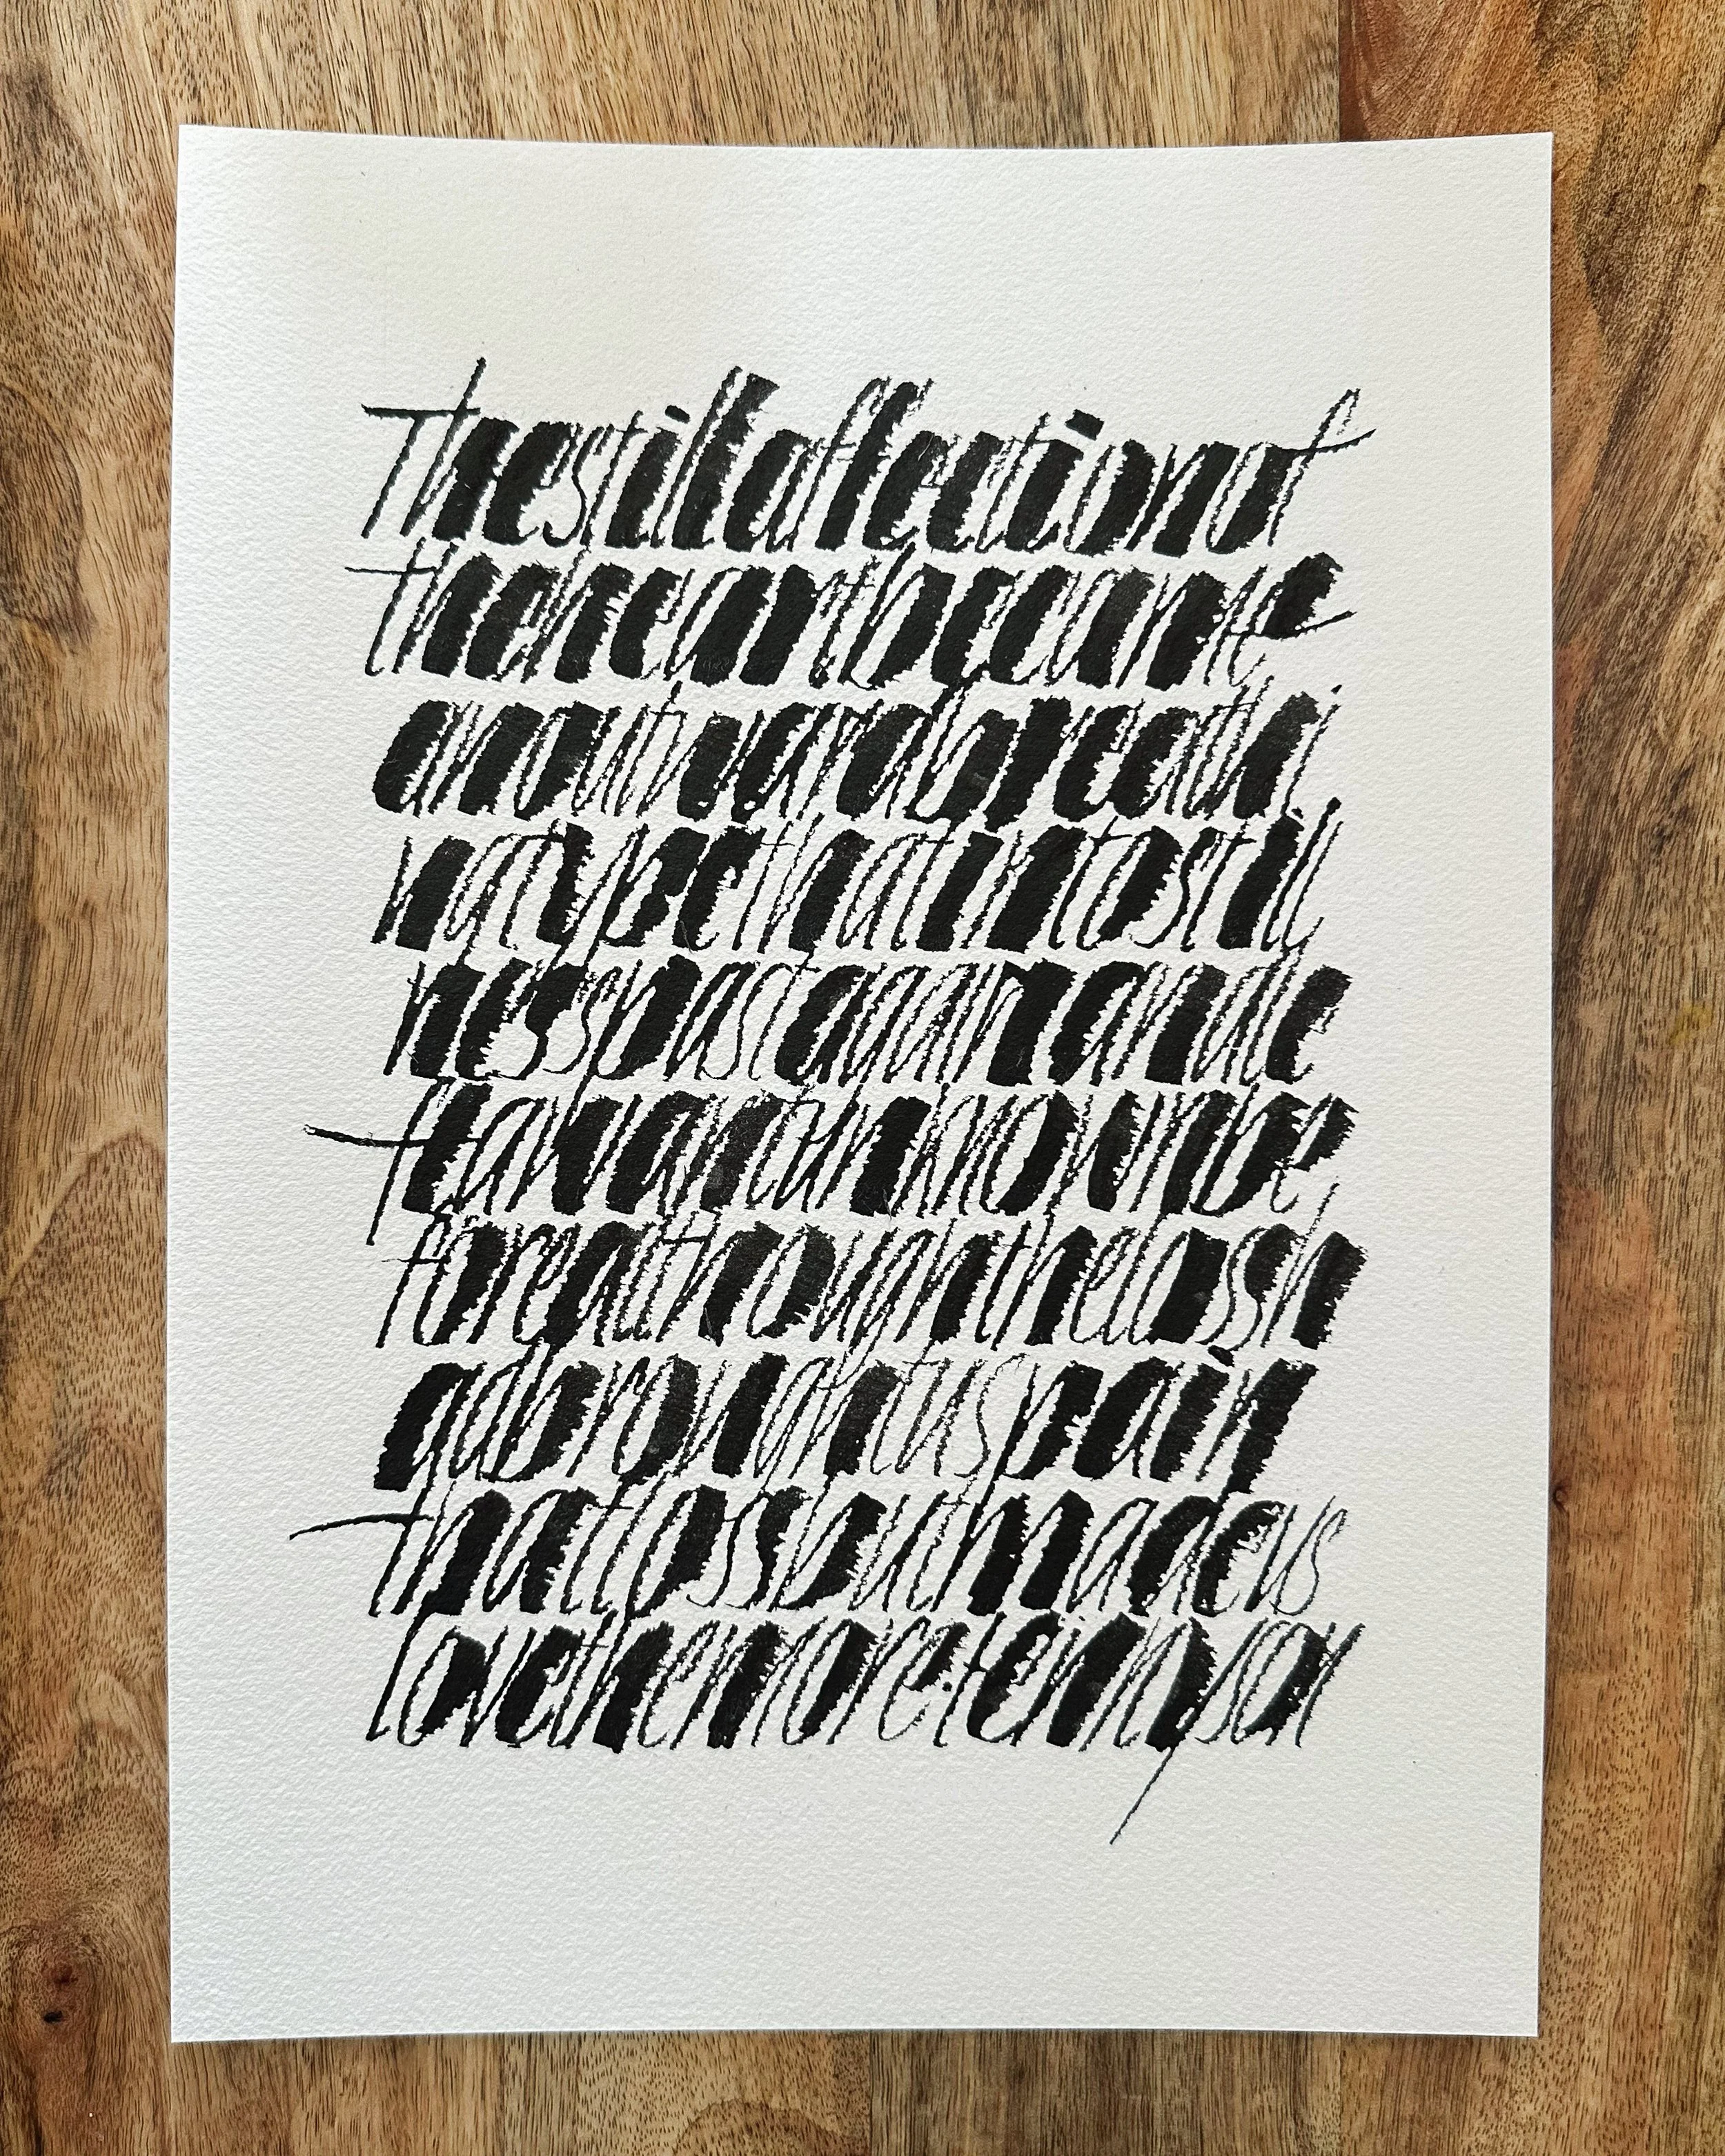 Thestillaffectionof
theheartbecame
anoutwardbreathi
ngtypethatintostill
nesspastagainandle
ftawantunknownbe
forealthoughthelossh
adbroughtuspain
thatlossbutmadeus
lovethemore·tennyson